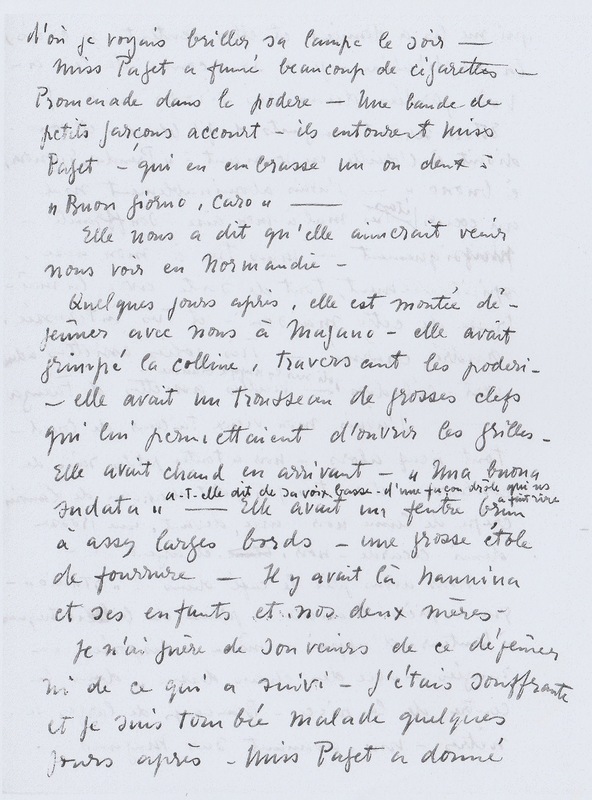 d'où je voyais briller sa lampe le soir —
Miss Paget a fumé beaucoup de cigarettes —
Promenade dans le podere — Une bande de
petits garçons accourt — ils entourent Miss
Paget — qui en embrasse un ou deux :
« Buon giorno, caro » —
Elle nous a dit qu'elle aimerait venir
nous voir en Normandie —
Quelques jours après, elle est montée dé-
jeûner avec nous à Majano — elle avait
grimpé la colline, traversant les poderi —
— elle avait un trousseau de grosses clefs
qui lui permettaient d'ouvrir les grilles —
Elle avait chaud en arrivant — « Una buona
a-t-elle dit de sa voix basse — d'une façon drôle qui ns
a fait rire
sudata » — Elle avait un feutre brun
à assez larges bords — une grosse étole
de fourrure — Il y avait là Nannina
et ses enfants et nos deux mères —
Je n'ai guère de souvenirs de ce déjeûner
ni de ce qui a suivi — J'étais souffrante
et je suis tombée malade quelques
jours après — Miss Paget a donné